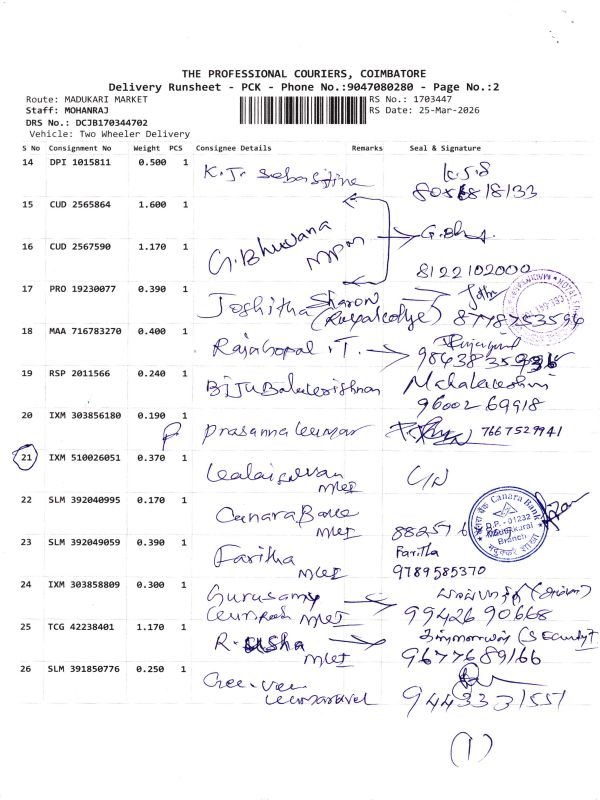 THE PROFESSIONAL COURIERS, COIMBATORE
Delivery Runsheet - PCK - Phone No.:9047080280 - Page No.:2
Route: MADUKARI MARKET
RS No.: 1703447
Staff: MOHANRAJ
RS Date: 25-Mar-2026
DRS No.: DCJB170344702
Vehicle: Two Wheeler Delivery
S No Consignment No Weight PCS Consignee Details Remarks Seal & Signature
14 DPI 1015811 0.500 1
K.J. Sebastine
15 CUD 2565864 1.600 1
16 CUD 2567590 1.170 1
G.Bhuvana
8122102000
17 PRO 19230077 0.390 1
Joshitha Sharon
18 MAA 716783270 0.400 1
Rajagopal .T.
19 RSP 2011566 0.240 1
Biju Balakrishnan
9600269918
20 IXM 303856180 0.190 1
Prasanna kumar 7667529941
21 IXM 510026051 0.370 1
Kalaiselvan
22 SLM 392040995 0.170 1
Canara Bank
Canara Bank
Branch
23 SLM 392049059 0.390 1
Faritha
Faritha
9789585370
24 IXM 303858809 0.300 1
Gurusamy
9942690668
25 TCG 42238401 1.170 1
R. Usha
9677689166
26 SLM 391850776 0.250 1
Gee-Vee
9443331551
(1)